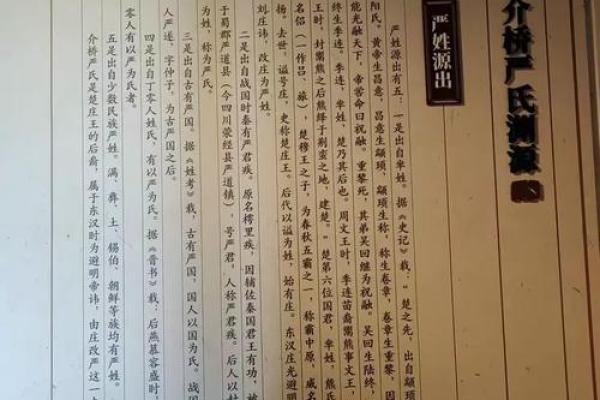 介桥严氏渊源
严姓源出
严姓源出有五：一是出自芈姓。据《史记》载：“楚之先，出自颛
阳氏。黄帝生昌意，昌意生颛顼，颛顼生称，称生卷章，卷章生重黎，
能光融天下，帝喾命曰祝融。重黎死，其弟吴回继为祝融。吴回生陆终，
终生季连。季连，芈姓，楚乃其后也。周文王时，季连苗裔鬻熊事文王，
王时，封鬻熊之后熊绎于荆蛮之地，建楚。”楚第六位国君，芈姓，熊氏
名侣（一作吕、旅），楚穆王之子，为春秋五霸之一，称霸中原，威名
扬。去世，谥号庄，史称楚庄王。后代以谥为姓，始有庄。东汉庄光避明
刘庄讳，改庄为严姓。
二是出自战国时秦有严君疾。原名樗里疾，因辅佐秦国君王有功，被
于蜀郡严道县（今四川荥经县严道镇），号严君，人称严君疾。后人以封
为姓，称为严氏。
三是出自古有严国。据《姓考》载，古有严国，国人以国为氏。战国
人严遂，字仲子，为古严国之后。
四是出自丁零人姓氏，有以严为氏。据《晋书》载：后燕慕容盛时，
零人有以严为氏者。
五是出自少数民族姓。满、彝、土、锡伯、朝鲜等族均有严姓。
介桥严氏是楚庄王的后裔，属于东汉时为避明帝讳，由庄改严这一